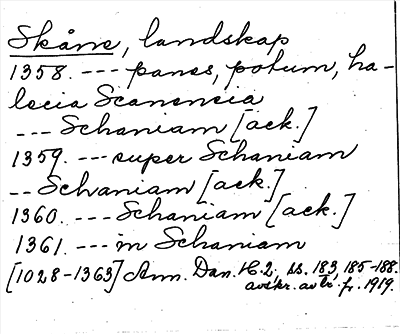 Skåne, landskap
1358. --- panes, potum, ha-
lecia Scanensia
--- Schaniam [ack.]
1359. --- super Schaniam
-- Schaniam [ack.]
1360. --- Schaniam [ack.]
1361. --- in Schaniam
[1028-1363] Ann. Dan. H. 2, ss. 183, 185-188.
avskr. av tr. fr. 1919.